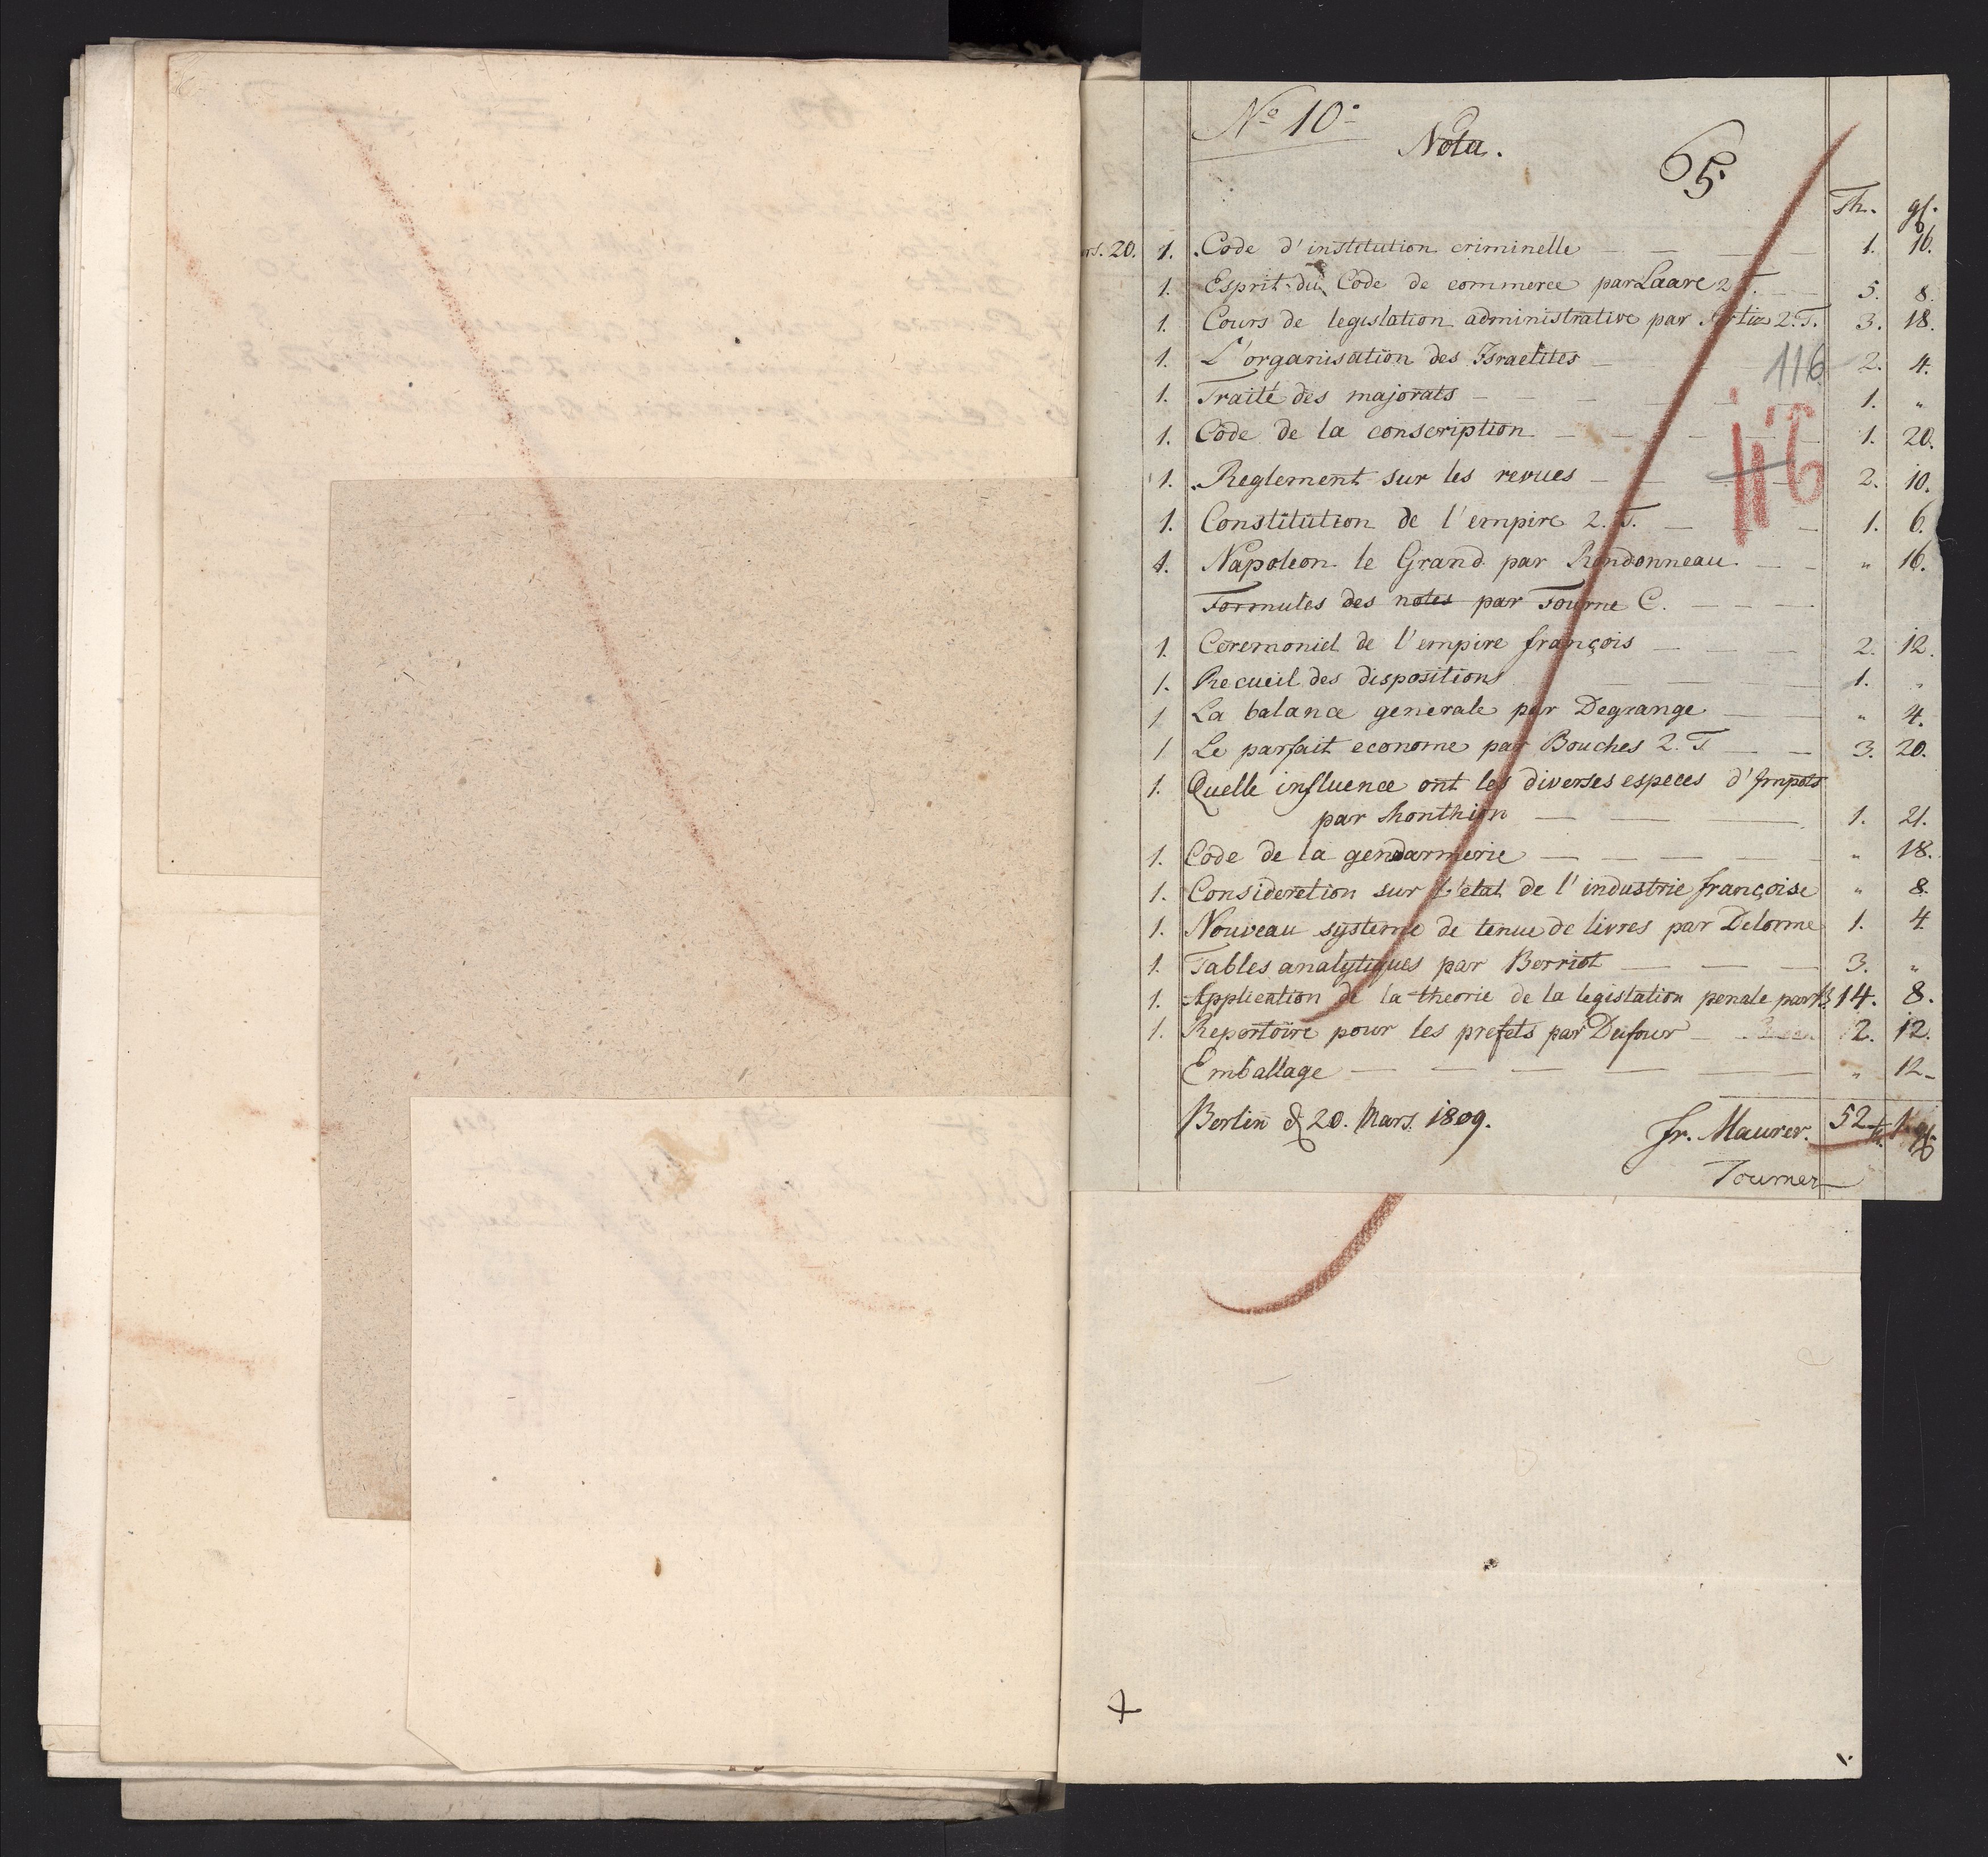 No 10.
Nota.
65.
Th. gl.
rs. 20. 1. Code d'institution criminelle — 1. 16.
1. Esprit du Code de commerce par Laare 2 T. — 5. 8.
1. Cours de legislation administrative par 2. T. 3. 18.
1. L'organisation des Israelites — 2. 4.
116
1. Traité des majorats — 1. "
1. Code de la conscription — 1. 20.
116
1. Reglement sur les revues — 2. 10.
1. Constitution de l'empire 2. T. — 1. 6.
1. Napoleon le Grand par Rondonneau — " 16.
Formules des notes par Tourne C. —
1. Ceremoniel de l'empire françois — 2. 12.
1. Recueil des dispositions — 1. "
1 La balance generale par Degrange — " 4.
1 Le parfait econome par Bouches 2. T — 3. 20.
1. Quelle influence ont les diverses especes d'Impots
par Monthion — 1. 21.
1. Code de la gendarmerie — " 18.
1. Consideretion sur l'etat de l'industrie françoise " 8.
1. Nouveau systeme de tenue de livres par Delorme 1. 4.
1. Tables analytiques par Berriot — 3. "
1. Application de la theorie de la legislation penale par 14. 8.
1. Repertoire pour les prefets par Dufour — 2. 12.
Emballage — " 12
Berlin d 20. Mars. 1809.
Fr. Maurer. 52 1
Tourner